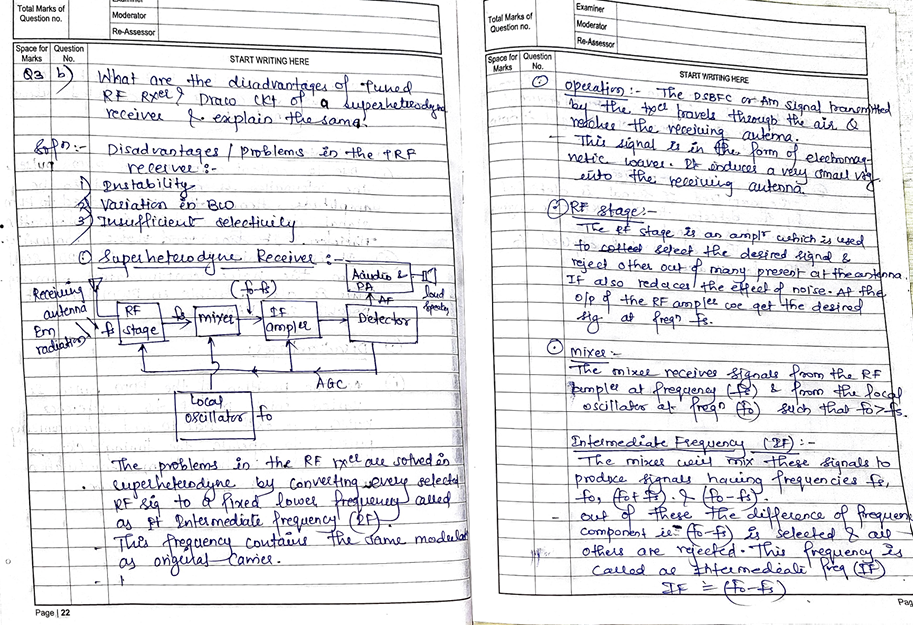 Total Marks of
Question no.
Examiner
Moderator
Re-Assessor
Space for
Marks
Question
No.
START WRITING HERE
Q3 b) What are the disadvantages of Tuned
RF Rxer? Draw CKt of a superheterodyne
receiver & explain the same.
Soln:- Disadvantages / Problems in the TRF
receiver:-
1) Instability
2) Variation in BW
3) Insufficient selectivity
Superheterodyne Receiver:-
Receiving
antenna
Em
radiation
fs
RF
stage
fs
mixer
(fo-fs)
IF
ampler
Audio &
PA
loud
speaker
AF
Detector
AGC
Local
oscillator
fo
The problems in the RF rxer are solved in
superheterodyne by converting every selected
RF sig to a fixed lower frequency called
as Intermediate frequency (IF).
This frequency contains the same modulatn
as original carrier.
Page | 22
Total Marks of
Question no.
Examiner
Moderator
Re-Assessor
Space for
Marks
Question
No.
START WRITING HERE
operation:- The DSBFC or Am signal transmitted
by the txer travels through the air &
reaches the receiving antenna.
- This signal is in the form of electromag-
netic waves. It induces a very small vtg.
into the receiving antenna
RF stage:-
The RF stage is an amplr which is used
to select the desired signal &
reject other out of many present at the antenna.
If also reduces the effect of noise. At the
o/p of the RF ampler we get the desired
sig at freqn fs.
Mixer:-
The mixer receives signals from the RF
ampler at frequency (fs) & from the local
oscillator at freqn (fo) such that fo>fs.
Intermediate Frequency (IF):-
The mixer will mix these signals to
produce signals having frequencies fs,
fo, (fo+fs) & (fo-fs).
- out of these the difference of frequency
component ie (fo-fs) is selected & all
others are rejected. This frequency is
called as Intermediate freq (IF)
IF = (fo-fs)
Pag